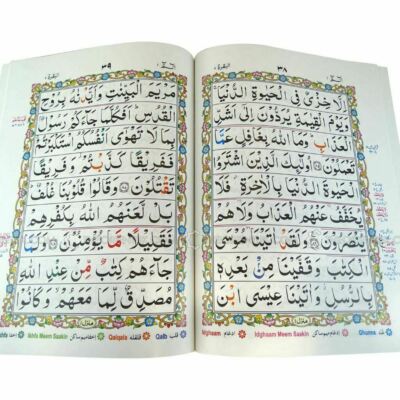 البقرة ٢
٣٨
اِلَّا خِزْىٌ فِى الْحَيٰوةِ الدُّنْيَا
وَيَوْمَ الْقِيٰمَةِ يُرَدُّوْنَ اِلٰٓى اَشَدِّ
الْعَذَابِ وَمَا اللّٰهُ بِغَافِلٍ عَمَّا
تَعْمَلُوْنَ اُولٰٓئِكَ الَّذِيْنَ اشْتَرَوُا
الْحَيٰوةَ الدُّنْيَا بِالْاٰخِرَةِ فَلَا
يُخَفَّفُ عَنْهُمُ الْعَذَابُ وَلَا هُمْ
يُنْصَرُوْنَ وَلَقَدْ اٰتَيْنَا مُوْسَى
الْكِتٰبَ وَقَفَّيْنَا مِنْۢ بَعْدِهٖ
بِالرُّسُلِ وَاٰتَيْنَا عِيْسَى ابْنَ
Idghaam ادغام Idghaam Meem Saakin ادغام میم ساکن Ghunna غنہ
البقرة ٢
٣٩
مَرْيَمَ الْبَيِّنٰتِ وَاَيَّدْنٰهُ بِرُوْحِ
الْقُدُسِ اَفَكُلَّمَا جَآءَكُمْ رَسُوْلٌۢ
بِمَا لَا تَهْوٰٓى اَنْفُسُكُمُ اسْتَكْبَرْتُمْ
فَفَرِيْقًا كَذَّبْتُمْ وَفَرِيْقًا
تَقْتُلُوْنَ وَقَالُوْا قُلُوْبُنَا غُلْفٌ
بَلْ لَّعَنَهُمُ اللّٰهُ بِكُفْرِهِمْ
فَقَلِيْلًا مَّا يُؤْمِنُوْنَ وَلَمَّا
جَآءَهُمْ كِتٰبٌ مِّنْ عِنْدِ اللّٰهِ
مُصَدِّقٌ لِّمَا مَعَهُمْ وَكَانُوْا
Ikhfa Meem Saakin اخفا میم ساکن Qalqala قلقلہ Qalb قلب